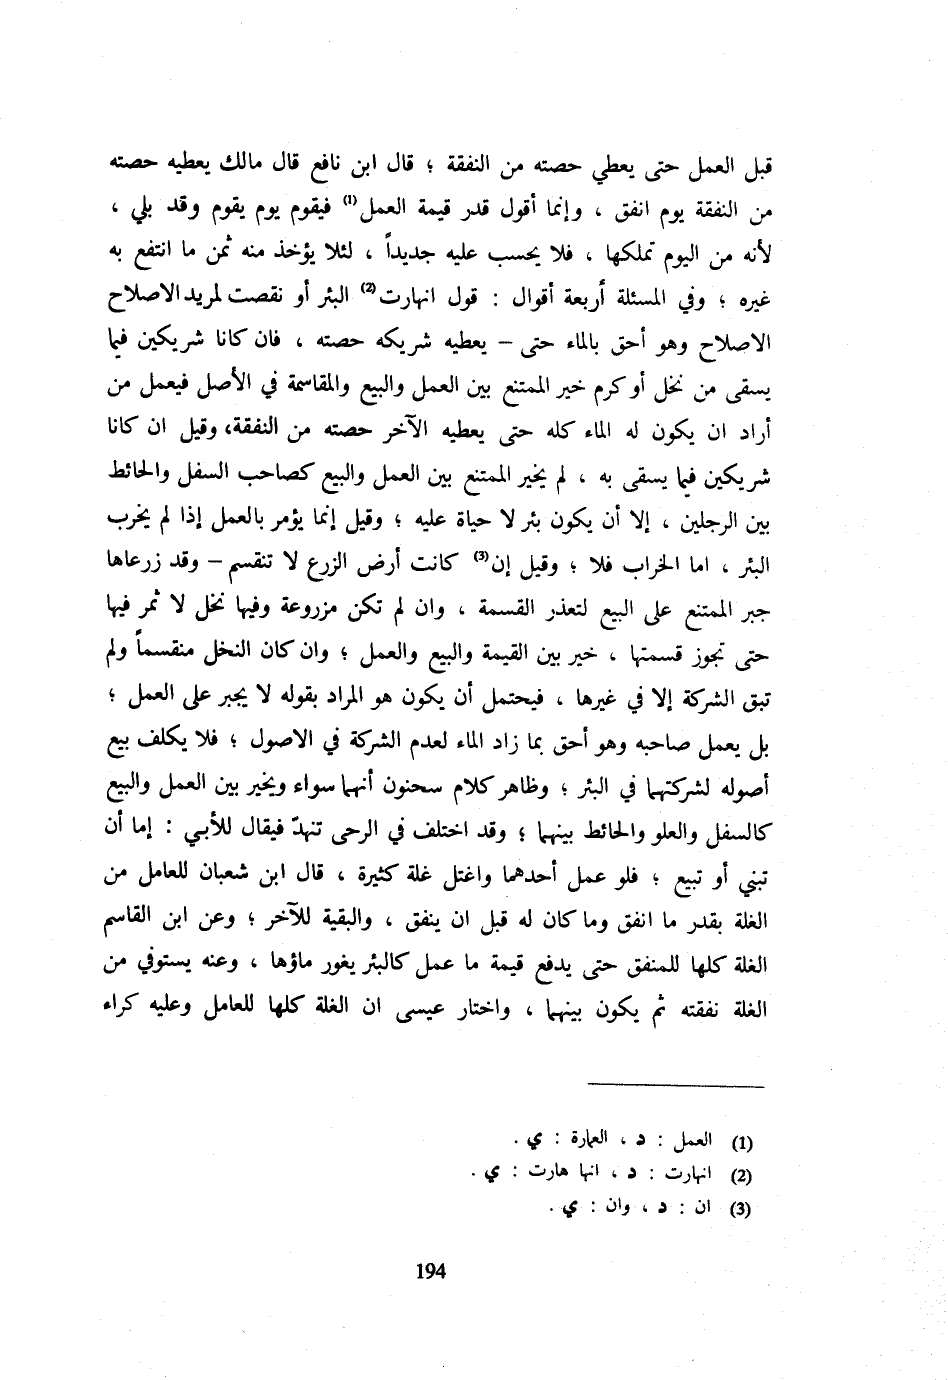 قبل العمل حتى يعطي حصته من النفقة ؛ قال ابن نافع قال مالك يعطيه حصته
من النفقة يوم انفق ، وإنما أقول قدر قيمة العمل(1) فيقوم يوم يقوم وقد بلي ،
لأنه من اليوم تملكها ، فلا يحسب عليه جديداً ، لئلا يؤخذ منه ثمن ما انتفع به
غيره ؛ وفي المسئلة أربعة أقوال : قول انهارت(2) البئر أو نقصت لمريد الاصلاح
الاصلاح وهو أحق بالماء حتى – يعطيه شريكه حصته ، فان كانا شريكين فيما
يسقى من نخل أو كرم خير الممتنع بين العمل والبيع والمقاسمة في الأصل فيعمل من
أراد ان يكون له الماء كله حتى يعطيه الآخر حصته من النفقة، وقيل ان كانا
شريكين فيما يسقى به ، لم يخير الممتنع بين العمل والبيع كصاحب السفل والحائط
بين الرجلين ، إلا أن يكون بئر لا حياة عليه ؛ وقيل إنما يؤمر بالعمل إذا لم يخرب
البئر ، اما الخراب فلا ؛ وقيل إن(3) كانت أرض الزرع لا تنقسم – وقد زرعاها
جبر الممتنع على البيع لتعذر القسمة ، وان لم تكن مزروعة وفيها نخل لا ثمر فيها
حتى تجوز قسمتها ، خير بين القيمة والبيع والعمل ؛ وان كان النخل منقسماً ولم
تبق الشركة إلا في غيرها ، فيحتمل أن يكون هو المراد بقوله لا يجبر على العمل ؛
بل يعمل صاحبه وهو أحق بما زاد الماء لعدم الشركة في الاصول ؛ فلا يكلف بيع
أصوله لشركتهما في البئر ؛ وظاهر كلام سحنون أنهما سواء ويخير بين العمل والبيع
كالسفل والعلو والحائط بينهما ؛ وقد اختلف في الرحى تنهدّ فيقال للأبي : إما أن
تبني أو تبيع ؛ فلو عمل أحدهما واغتل غلة كثيرة ، قال ابن شعبان للعامل من
الغلة بقدر ما انفق وما كان له قبل ان ينفق ، والبقية للآخر ؛ وعن ابن القاسم
الغلة كلها للمنفق حتى يدفع قيمة ما عمل كالبئر يغور ماؤها ، وعنه يستوفي من
الغلة نفقته ثم يكون بينهما ، واختار عيسى ان الغلة كلها للعامل وعليه كراء
(1) العمل : د ، العمارة : ي .
(2) انهارت : د ، انها هارت : ي .
(3) ان : د ، وان : ي .
194